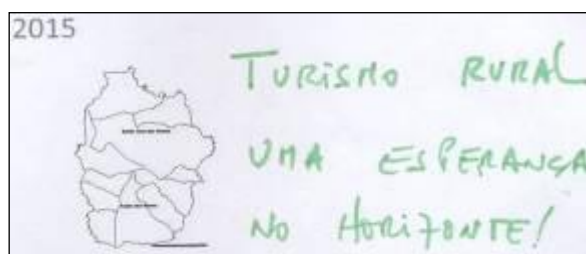 2015
TURISMO RURAL
UMA ESPERANÇA
NO HORIZONTE!